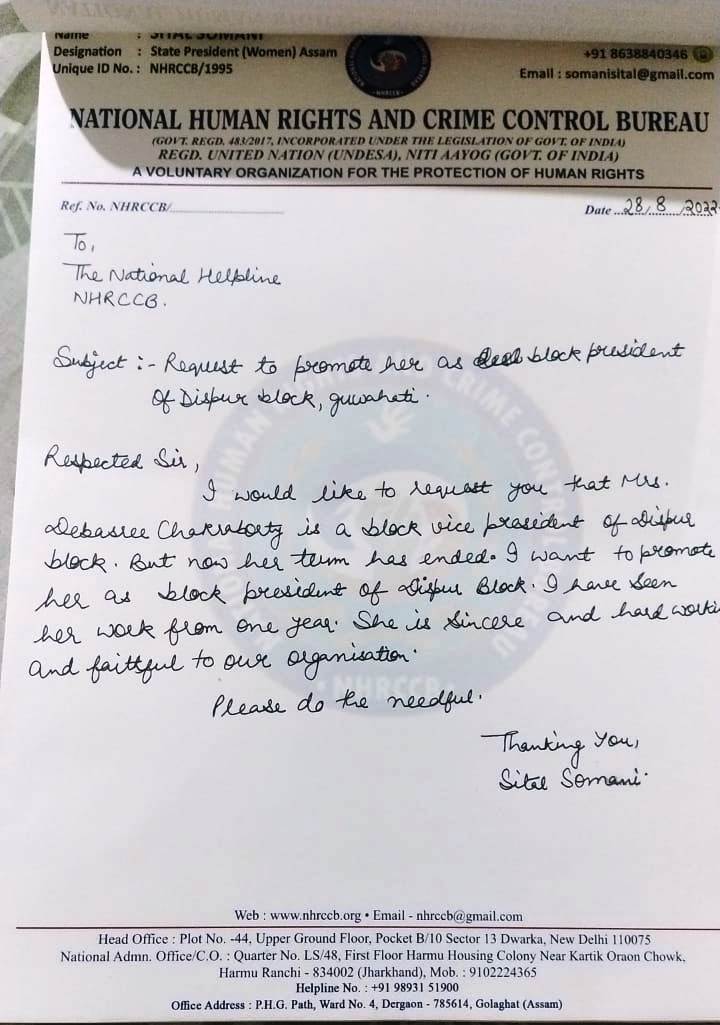 Name : SITAL SOMANI
Designation : State President (Women) Assam
Unique ID No. : NHRCCB/1995
+91 8638840346
Email : somanisital@gmail.com
NATIONAL HUMAN RIGHTS AND CRIME CONTROL BUREAU
(GOVT. REGD. 483/2017, INCORPORATED UNDER THE LEGISLATION OF GOVT. OF INDIA)
REGD. UNITED NATION (UNDESA), NITI AAYOG (GOVT. OF INDIA)
A VOLUNTARY ORGANIZATION FOR THE PROTECTION OF HUMAN RIGHTS
Ref. No. NHRCCB/
Date ...28/8/2022
To,
The National Helpline
NHRCCB.
Subject :- Request to promote her as block president
of Dispur block, guwahati.
Respected Sir,
I would like to request you that Mrs.
Debasree Chakraborty is a block vice president of Dispur
block. But now her term has ended. I want to promote
her as block president of Dispur Block. I have seen
her work from one year. She is sincere and hard workin
and faithful to our organisation.
Please do the needful.
Thanking You,
Sital Somani.
NHRCCB
Web : www.nhrccb.org • Email - nhrccb@gmail.com
Head Office : Plot No. -44, Upper Ground Floor, Pocket B/10 Sector 13 Dwarka, New Delhi 110075
National Admn. Office/C.O. : Quarter No. LS/48, First Floor Harmu Housing Colony Near Kartik Oraon Chowk,
Harmu Ranchi - 834002 (Jharkhand), Mob. : 9102224365
Helpline No. : +91 98931 51900
Office Address : P.H.G. Path, Ward No. 4, Dergaon - 785614, Golaghat (Assam)